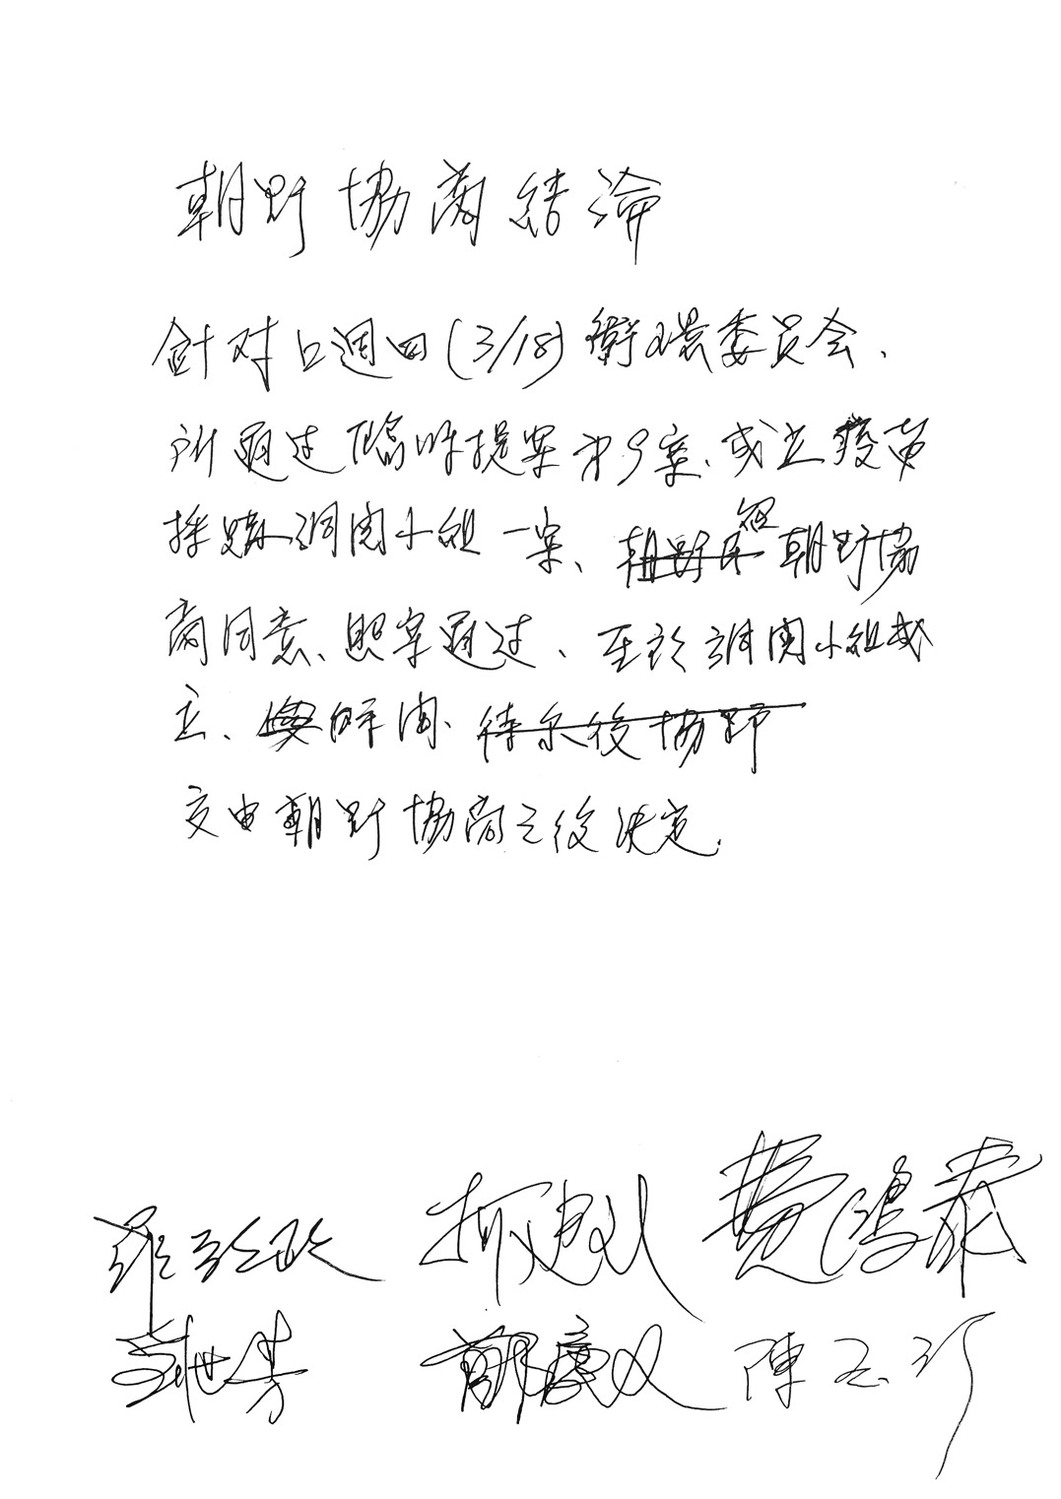 朝野協商結論
針对上週四(3/18)衛環委員会、
所通过臨時提案第9案、成立疫苗
採購調閱小組一案、朝野 經 朝野協
商同意、照案通过、至於調閱小組成
立、時間、待会後協野
交由朝野協商之後決定.
羅致政 柯建銘 費鴻泰
劉世芳 鄭麗文 陳玉珍